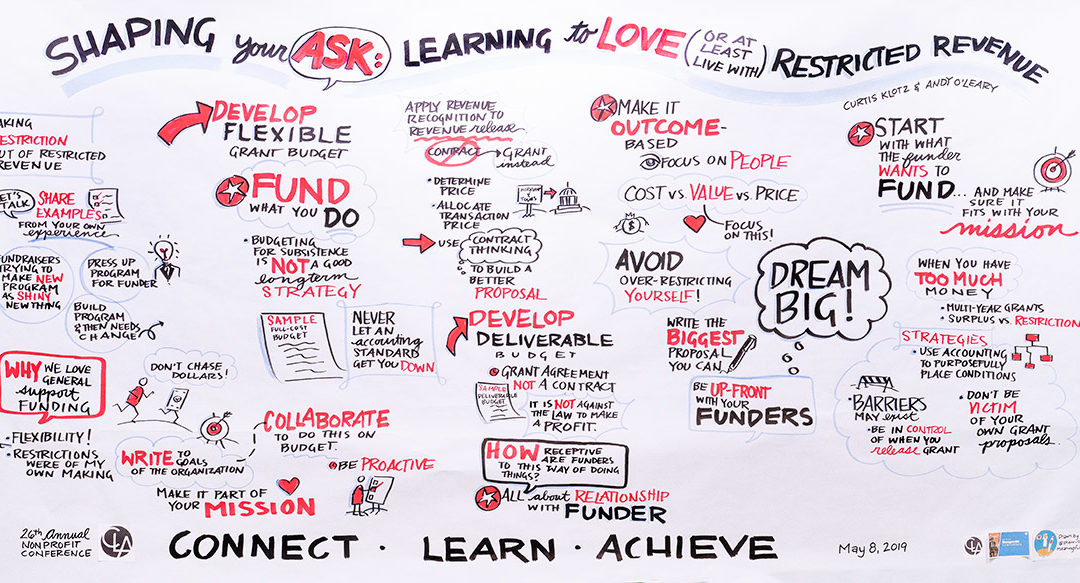 SHAPING your ASK: LEARNING to LOVE (OR AT LEAST LIVE WITH) RESTRICTED REVENUE
CURTIS KLOTZ & ANDY O'LEARY
AKING
ESTRICTION
UT OF RESTRICTED
REVENUE
ET'S TALK
SHARE
EXAMPLES
FROM YOUR OWN
experience
FUNDRAISERS
TRYING TO
MAKE NEW
PROGRAM
AS SHINY
NEW THING
DRESS UP
PROGRAM
FOR FUNDER
BUILD
PROGRAM
& THEN NEEDS
CHANGE
WHY WE LOVE
GENERAL
support
FUNDING
DON'T CHASE
DOLLARS!
• FLEXIBILITY!
• RESTRICTIONS
WERE OF MY
OWN MAKING
WRITE TO GOALS
OF THE ORGANIZATION
MAKE IT PART OF
YOUR MISSION
DEVELOP
FLEXIBLE
GRANT BUDGET
FUND
WHAT YOU DO
• BUDGETING
FOR SUBSISTENCE
IS NOT A GOOD
longterm
STRATEGY
SAMPLE
FULL-COST
BUDGET
NEVER
LET AN
accounting
STANDARD
GET YOU DOWN
COLLABORATE
TO DO THIS ON
BUDGET.
BE PROACTIVE
APPLY REVENUE
RECOGNITION TO
REVENUE release
CONTRACT
GRANT
instead
• DETERMINE
PRICE
• ALLOCATE
TRANSACTION
PRICE
• USE CONTRACT
THINKING
TO BUILD A
BETTER
PROPOSAL
DEVELOP
DELIVERABLE
BUDGET
GRANT AGREEMENT
NOT A CONTRACT
SAMPLE
DELIVERABLE
BUDGET
IT IS NOT AGAINST
THE LAW TO MAKE
A PROFIT.
HOW RECEPTIVE
ARE FUNDERS
TO THIS WAY OF DOING
THINGS?
ALL about RELATIONSHIP
WITH FUNDER
MAKE IT
OUTCOME-
BASED
FOCUS ON PEOPLE
COST vs. VALUE vs. PRICE
FOCUS
ON THIS!
AVOID
OVER-RESTRICTING
YOURSELF!
WRITE THE
BIGGEST
PROPOSAL
YOU CAN
BE UP-FRONT
WITH YOUR
FUNDERS
DREAM
BIG!
START
WITH WHAT
THE funder
WANTS TO
FUND... AND MAKE
SURE IT
FITS WITH YOUR
mission
WHEN YOU HAVE
TOO MUCH
MONEY
• MULTI-YEAR GRANTS
• SURPLUS VS. RESTRICTION
STRATEGIES
• USE ACCOUNTING
TO PURPOSEFULLY
PLACE CONDITIONS
• BARRIERS
MAY exist
• BE IN CONTROL
OF WHEN YOU
release GRANT
• DON'T BE
VICTIM
OF YOUR
OWN GRANT
proposals.
26th Annual
NONPROFIT
CONFERENCE
CLA
CONNECT · LEARN · ACHIEVE
May 8, 2019
CLA